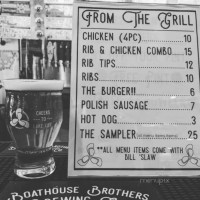 From The Grill
CHICKEN (4PC)..........10
RIB & CHICKEN COMBO....15
RIB TIPS...............12
RIBS...................10
THE BURGER!!...........6
POLISH SAUSAGE.........7
HOT DOG................3
THE SAMPLER............25
**ALL MENU ITEMS COME WITH
BILL 'SLAW
CHEERS
BOATHOUSE BROTHERS
BREWING